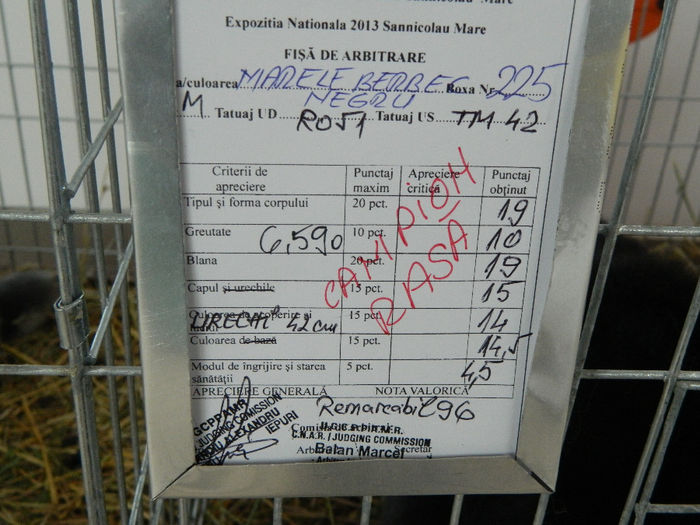 Sannicolau Mare
Expozitia Nationala 2013 Sannicolau Mare
FIȘĂ DE ARBITRARE
a/culoarea MARELE BERBEC Boxa Nr. 225
NEGRU
M Tatuaj UD R051 Tatuaj US TM 42
Criterii de apreciere Punctaj maxim Apreciere critică Punctaj obținut
Tipul și forma corpului 20 pct. 19
Greutate 6,590 10 pct. 10
Blana 20 pct. 19
Capul și urechile 15 pct. 15
Culoarea de acoperire și
URECHI 42 cm 15 pct. 14
Culoarea de bază 15 pct. 14,5
Modul de îngrijire și starea sănătății 5 pct. 4,5
CAMPION
RASĂ
APRECIERE GENERALĂ NOTA VALORICĂ
Remarcabil 96
JUDGING COMISSION
ALEXANDRU
IEPURI
C.N.A.R. / JUDGING COMMISSION
Balan Marcel